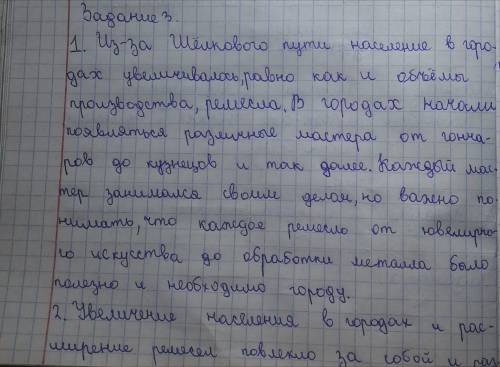 Задание 3.
1. Из-за Шёлкового пути население в горо-
дах увеличивалось, равно как и объёмы
производства, ремесла. В городах начали
появляться различные мастера от гонча-
ров до кузнецов и так далее. Каждый мас-
тер занимался своим делом, но важно по-
нимать, что каждое ремесло от ювелирно-
го искусства до обработки металла было
полезно и необходимо городу.
2. Увеличение населения в городах и рас-
ширение ремесел повлекло за собой и раз